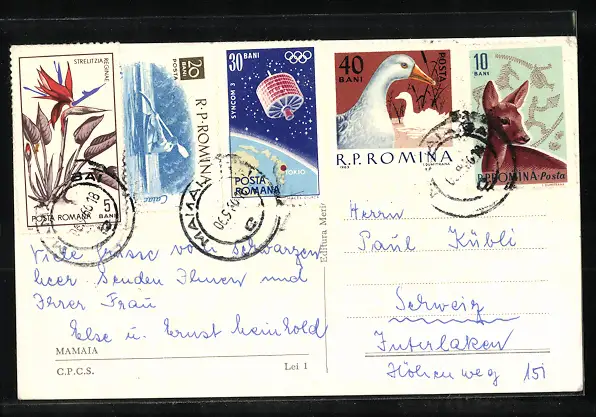 STRELITZIA REGINAE
POSTA ROMANA 5 BANI
20 BANI
POSTA
R.P. ROMINA
Caiac
30 BANI
SYNCOM 3
TOKIO
POSTA ROMANA
40 BANI
POSTA
R.P. ROMINA
10 BANI
R.P. ROMINA Posta
Viele Grüsse vom Schwarzen
Meer senden Ihnen und
Ihrer Frau
Else u. Ernst Meinhold
MAMAIA
C.P.C.S.
Lei 1
Editura Meri
Herrn
Paul Kübli
Schweiz
Interlaken
Höhenweg 151